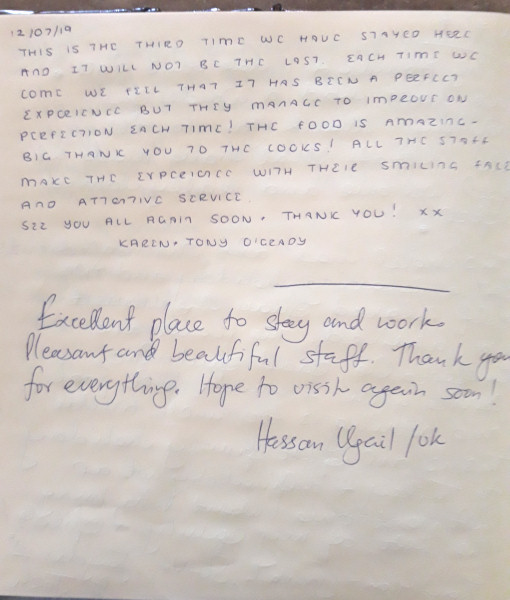 12/07/19
THIS IS THE THIRD TIME WE HAVE STAYED HERE
AND IT WILL NOT BE THE LAST. EACH TIME WE
COME WE FEEL THAT IT HAS BEEN A PERFECT
EXPERIENCE BUT THEY MANAGE TO IMPROVE ON
PERFECTION EACH TIME! THE FOOD IS AMAZING -
BIG THANK YOU TO THE COOKS! ALL THE STAFF
MAKE THE EXPERIENCE WITH THEIR SMILING FACE
AND ATTENTIVE SERVICE.
SEE YOU ALL AGAIN SOON. THANK YOU! XX
KAREN + TONY O'GRADY
Excellent place to stay and work.
Pleasant and beautiful staff. Thank you
for everything. Hope to visit again soon!
Hassan Ugail /UK